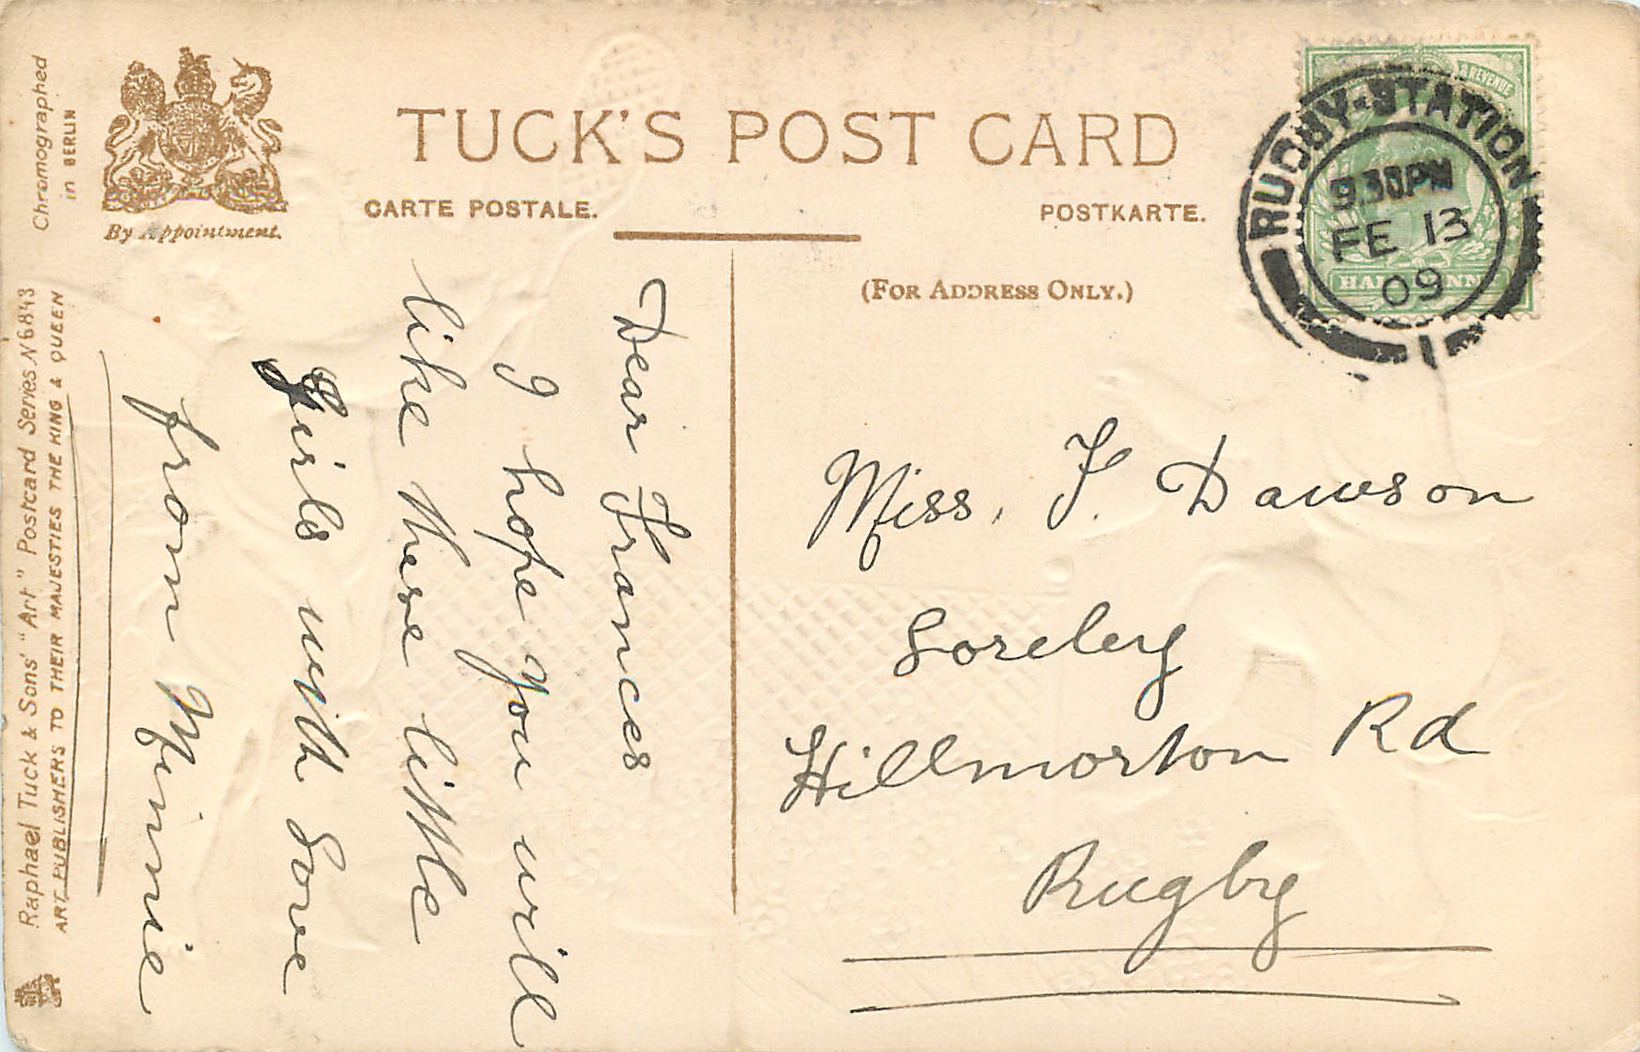 TUCK'S POST CARD
CARTE POSTALE.
POSTKARTE.
(FOR ADDRESS ONLY.)
By Appointment.
Chromographed
in BERLIN
Raphael Tuck & Sons' "Art" Postcard Series No 6843
ART PUBLISHERS TO THEIR MAJESTIES THE KING & QUEEN
& REVENUE
STATION
9 30PM
FE 13
09
1
Dear Frances
I hope you will
like these little
girls with love
from Minnie
Miss. F. Dawson
Loreley
Hillmorton Rd
Rugby